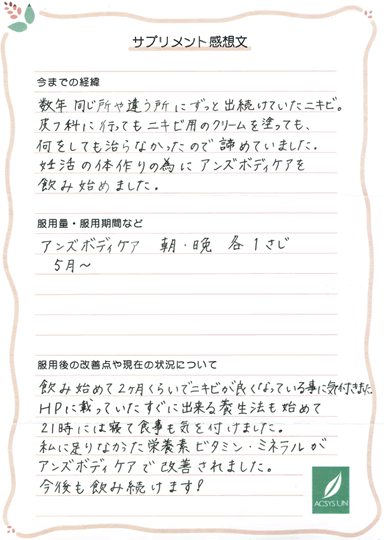 サプリメント感想文
今までの経緯
数年 同じ所や違う所にずっと出続けていたニキビ。
皮フ科に行ってもニキビ用のクリームを塗っても、
何をしても治らなかったので諦めていました。
妊活の体作りの為にアンズボディケアを
飲み始めました。
服用量・服用期間など
アンズボディケア 朝・晩 各1さじ
5月〜
服用後の改善点や現在の状況について
飲み始めて2ヶ月くらいでニキビが良くなっている事に気付きました
HPに載っていたすぐに出来る養生法も始めて
21時には寝て食事も気を付けました。
私に足りなかった栄養素ビタミン・ミネラルが
アンズボディケアで改善されました。
今後も飲み続けます!
ACSYS LIN